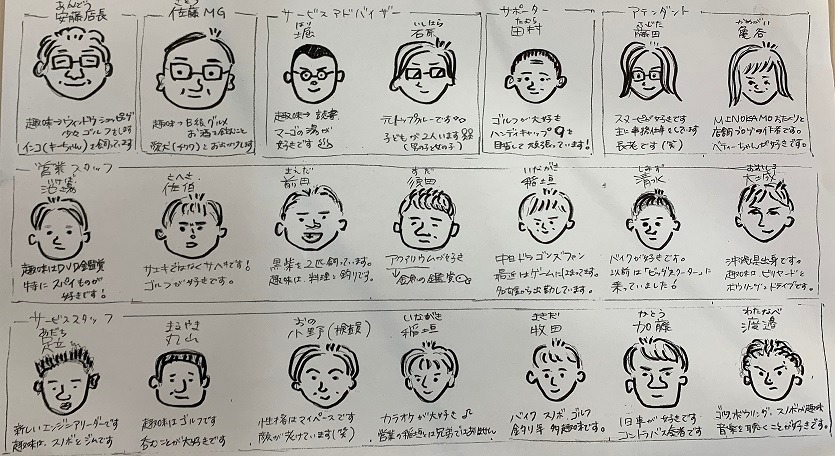 あんどう
安藤店長
さとう
佐藤MG
サービスアドバイザー
ほり
堀
いしはら
石原
サポーター
たむら
田村
アテンダント
ふじた
藤田
かめがい
亀谷
趣味→ウィンドウショッピング
少々ゴルフをします
インコ(キーちゃん)を飼っています
趣味→B級グルメ
お酒を飲むこと
愛犬(チワワ)とお出かけします
趣味→読書
マーゴの湯が
好きです
元トップカレーです
子どもが2人います
(男の子女の子)
ゴルフが大好き
ハンディキャップ9を
目指して頑張っています!
スヌーピーが好きです
主に事務仕事をしています
長老です(笑)
店舗ブログのライト者です。
ベティーちゃんが好きです。
営業スタッフ
池場
さへき
佐伯
まえだ
前田
すだ
須田
いながき
稲垣
しみず
清水
おおしろ
大城
趣味はDVD鑑賞
特にスパイものが
好きです!
サエキではなくサヘキです!
ゴルフが好きです。
黒柴を2匹飼っています。
趣味は、料理と釣りです。
アクアリウムが好き
金魚の鑑賞
中日ドラゴンズファン
最近はゲームにはまってます。
名古屋から出勤しています。
バイクが好きです。
以前は「ビッグスクーター」に
乗っていました!
沖縄県出身です。
趣味はビリヤードと
ボウリングとドライブです。
サービススタッフ
あだち
足立
まるやま
丸山
おの
小野(検査員)
いながき
稲垣
まきだ
牧田
かとう
加藤
わたなべ
渡邉
新しいエンジニアリーダーです
趣味は、スノボとジムです
趣味はゴルフです
呑むことが大好きです
性格はマイペースです
顔が老けています(笑)
カラオケが大好き♪
営業の稲垣とは兄弟ではありません
バイク スノボ ゴルフ
釣り等 多趣味です。
旧車が好きです
コントラバス奏者です
ゴルフ、ボウリング、スノボが趣味
音楽を聴くことが好きです。